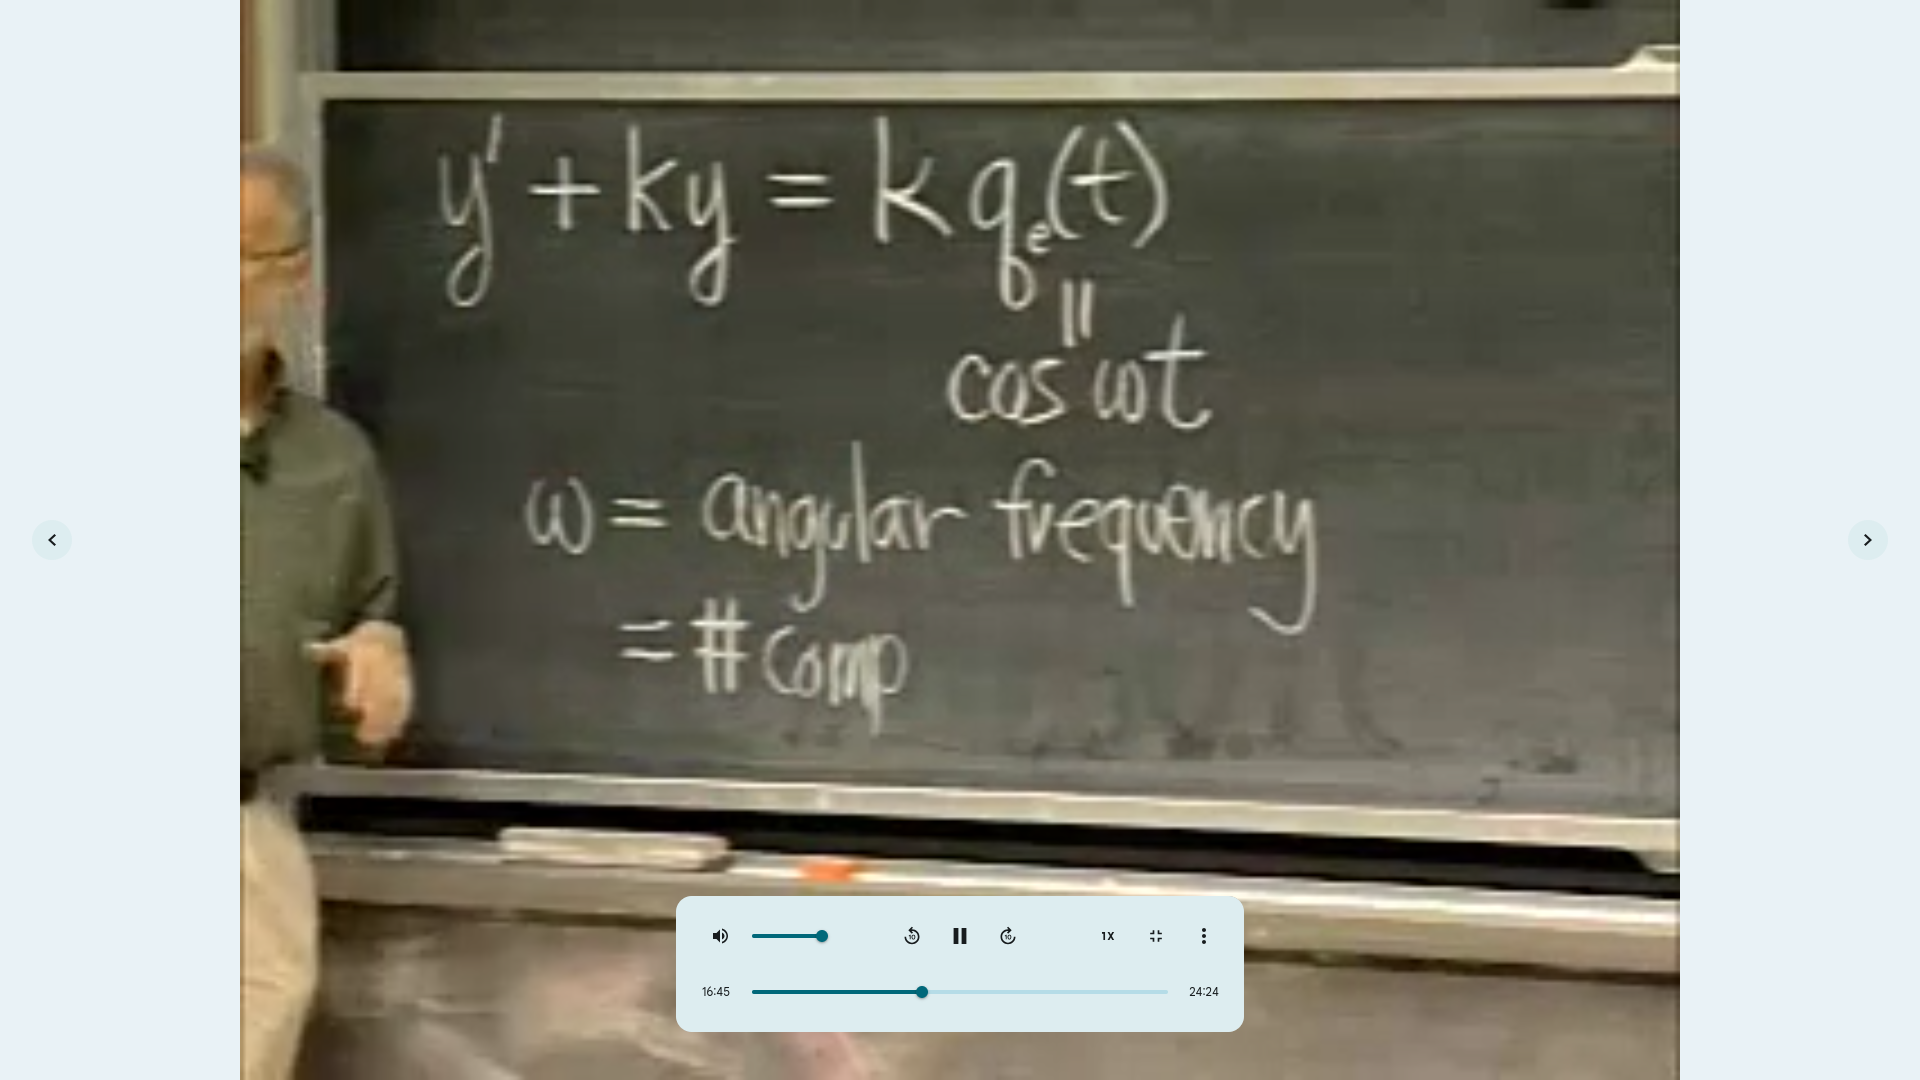 y' + ky = k qₑ(t)
||
cos ωt
ω = angular frequency
= # comp
1X
16:45
24:24